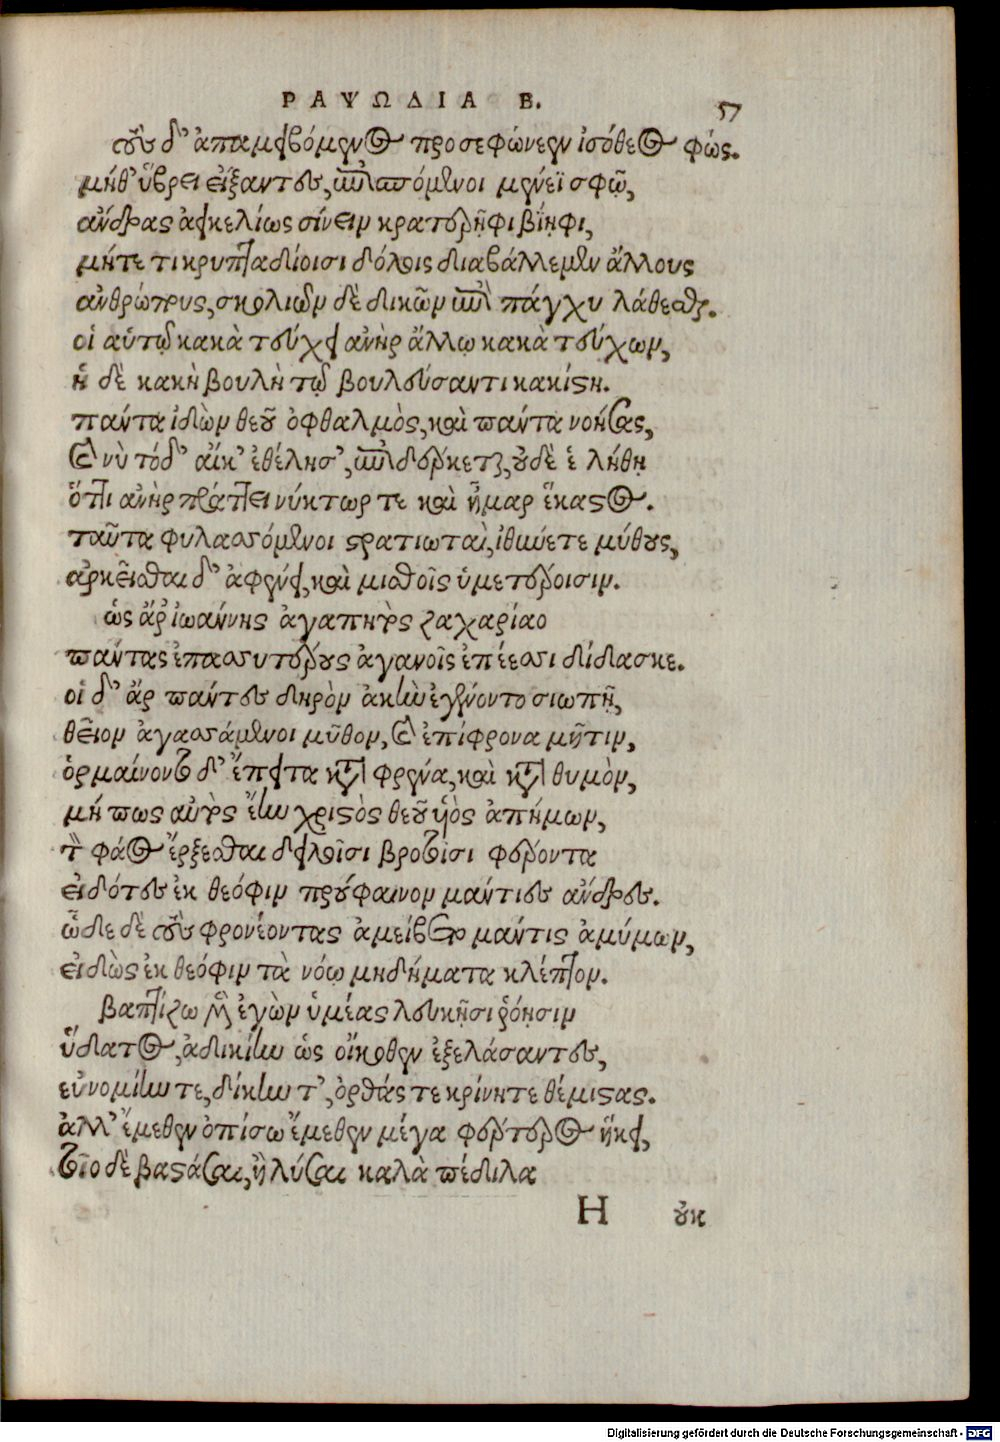 ΡΑΨΩΔΙΑ Β. 57
τοὺς δ' ἀπαμειβόμενος προσεφώνεεν ἰσόθεος φώς.
μήθ' ὕβρει εἴξαντες, ἐπισπόμενοι μένεϊ σφῷ,
ἄνδρας ἀεικελίως σίνειν κρατερῆφι βίηφι,
μήτε τι κρυπταδίοισι δόλοις διαβάλλεμεν ἄλλους
ἀνθρώπους, σκολιῶν δὲ δικῶν ἐπὶ πάγχυ λάθεσθε.
οἷ αὐτῷ κακὰ τεύχει ἀνὴρ ἄλλῳ κακὰ τεύχων,
ἡ δὲ κακὴ βουλὴ τῷ βουλεύσαντι κακίστη.
πάντα ἰδὼν θεοῦ ὀφθαλμὸς, καὶ πάντα νοήσας,
καὶ νὺ τόδ' αἴκ' ἐθέλησ', ἐπιδέρκεται, οὐδὲ ἑ λήθη
ὅττι ἀνὴρ πράττει νύκτωρ τε καὶ ἦμαρ ἕκαστος.
ταῦτα φυλασσόμενοι στρατιωταὶ, ἰθύνετε μύθους,
ἀρκεῖσθαι δ' ἀφένει, καὶ μισθοῖς ὑμετέροισιν.
ὡς ἄρ' ἰωάννης ἀγαπητὸς ζαχαρίαο
πάντας ἐπασσυτέρους ἀγανοῖς ἐπέεσσι δίδασκε.
οἱ δ' ἄρ πάντες δηρὸν ἀκὴν ἐγένοντο σιωπῇ,
θεῖον ἀγασσάμενοι μῦθον, καὶ ἐπίφρονα μῆτιν,
ὁρμαίνοντο δ' ἔπειτα κατὰ φρένα, καὶ κατὰ θυμὸν,
μή πως αὐτὸς ἔην χριστὸς θεοῦ υἱὸς ἀπήμων,
τὸν φάος ἔρξεσθαι δειλοῖσι βροτοῖσι φέροντα
εἰδότες ἐκ θεόφιν προύφαινον μάντιες ἄνδρες.
ὧδε δὲ τοὺς φρονέοντας ἀμείβετο μάντις ἀμύμων,
εἰδὼς ἐκ θεόφιν τὰ νόῳ μηδήματα κλέπτον.
βαπτίζω μὲν ἐγὼν ὑμέας λευκῇσι ῥόῃσιν
ὕδατος, ἀδικίην ὡς οἴκοθεν ἐξελάσαντες,
εὐνομίην τε, δίκην τ', ὀρθάς τε κρίνητε θέμιστας.
ἀλλ' ἔμεθεν ὀπίσω ἔμεθεν μέγα φέρτερος ἥκει,
τοῖο δὲ βαστάσαι, ἢ λύσαι καλὰ πέδιλα
H οὐκ
Digitalisierung gefördert durch die Deutsche Forschungsgemeinschaft - DFG